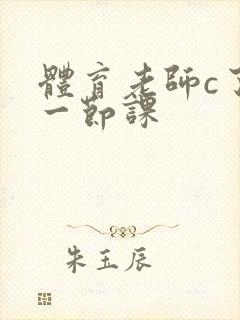 體育老師c了
一節課
朱玉辰